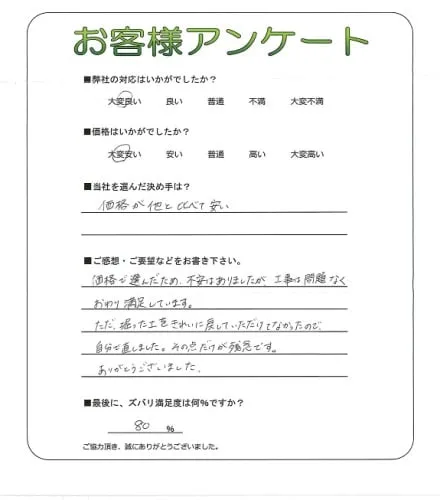 お客様アンケート
■弊社の対応はいかがでしたか？
大変良い 良い 普通 不満 大変不満
■価格はいかがでしたか？
大変安い 安い 普通 高い 大変高い
■当社を選んだ決め手は？
価格が他と比べて安い
■ご感想・ご要望などをお書き下さい。
価格で選んだため、不安はありましたが、工事は問題なく
おわり満足しています。
ただ、掘った土をきれいに戻していただけてなかったので、
自分で直しました。その点だけが残念です。
ありがとうございました。
■最後に、ズバリ満足度は何%ですか？
80 %
ご協力頂き、誠にありがとうございました。